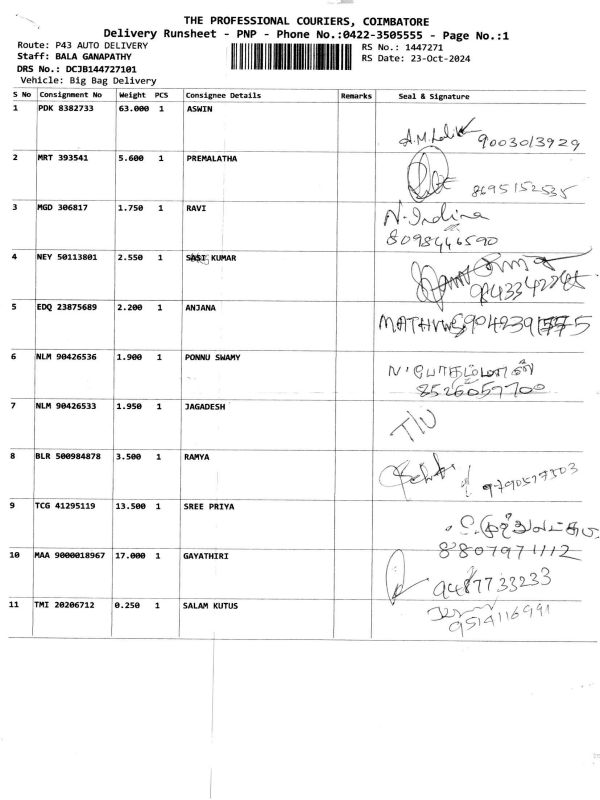 THE PROFESSIONAL COURIERS, COIMBATORE
Delivery Runsheet - PNP - Phone No.:0422-3505555 - Page No.:1
Route: P43 AUTO DELIVERY
RS No.: 1447271
Staff: BALA GANAPATHY
RS Date: 23-Oct-2024
DRS No.: DCJB144727101
Vehicle: Big Bag Delivery
S No Consignment No Weight PCS Consignee Details Remarks Seal & Signature
1 PDK 8382733 63.000 1 ASWIN
9003013929
2 MRT 393541 5.600 1 PREMALATHA
8695152535
3 MGD 306817 1.750 1 RAVI
N. Indira
8098446590
4 NEY 50113801 2.550 1 SASI KUMAR
5 EDQ 23875689 2.200 1 ANJANA
6 NLM 90426536 1.900 1 PONNU SWAMY
8526057700
7 NLM 90426533 1.950 1 JAGADESH
8 BLR 500984878 3.500 1 RAMYA
9790577303
9 TCG 41295119 13.500 1 SREE PRIYA
8807971112
10 MAA 9000018967 17.000 1 GAYATHIRI
9487733233
11 TMI 20206712 0.250 1 SALAM KUTUS
9514116991